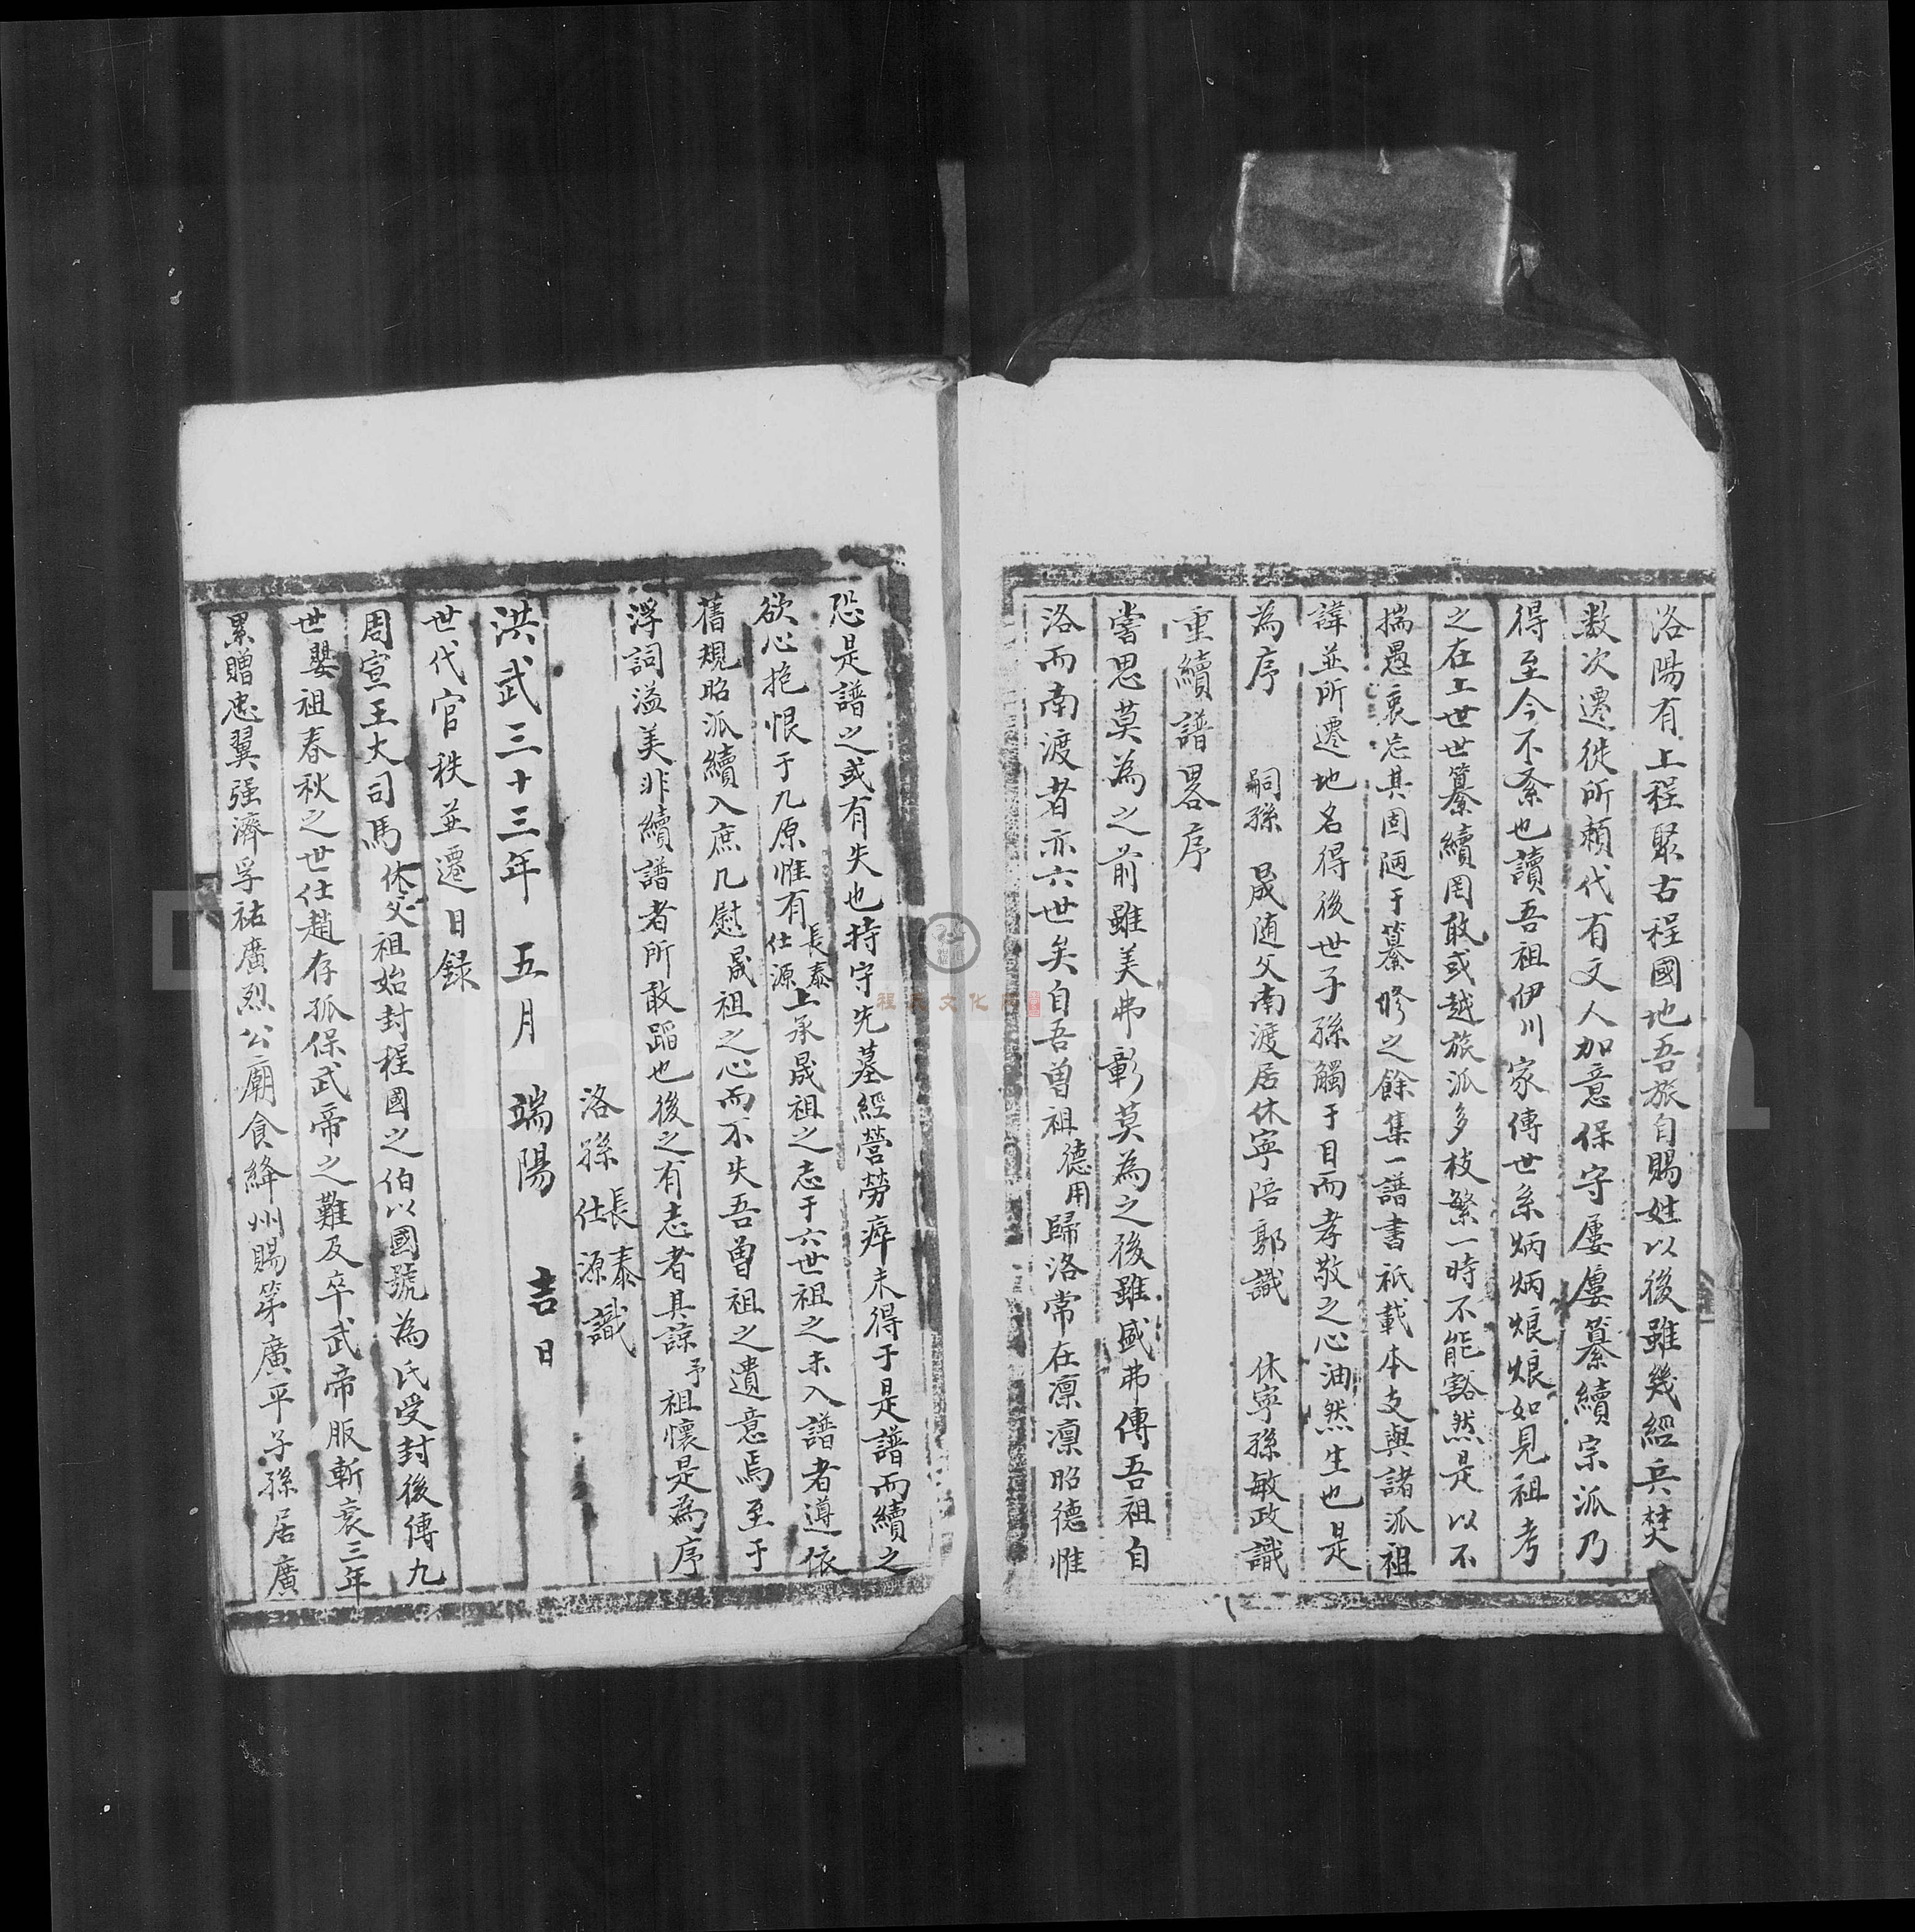 洛陽有上程聚古程國地吾旅自賜姓以後雖幾經兵焚
数次遷徙所頼代有文人加意保守屢屢纂續宗派乃
得至今不紊也讀吾祖伊川家傳世系炳炳烺烺如見祖考
之在上世世纂續罔敢或越旅派多枝繁一時不能豁然是以不
揣愚衷忘其固陋于纂修之餘集一譜書祇載本支與諸派祖
諱並所遷地名得後世子孫觸于目而孝敬之心油然生也是
為序 嗣孫 晟随父南渡居休寧陪郭識 休寧孫敏政識
重續譜畧序
嘗思莫為之前雖美弗彰莫為之後雖盛弗傳吾祖自
洛而南渡者亦六世矣自吾曾祖德用歸洛常在凛凛昭德惟
恐是譜之或有失也持守先墓經營勞瘁未得于是譜而續之
欲心抱恨于九原惟有長泰仕源上承晟祖之志于六世祖之未入譜者遵依
舊規昭派續入庶几慰晟祖之心而不失吾曾祖之遺意焉至于
浮詞溢美非續譜者所敢蹈也後之有志者其諒予祖懷是為序
洛孫長泰仕源識
洪武三十三年 五月 端陽 吉日
世代官秩並遷日録
周宣王大司馬休父祖始封程國之伯以國號為氏受封後傳九
世嬰祖春秋之世仕趙存孤保武帝之難及卒武帝服斬衰三年
累贈忠翼强濟孚祐廣烈公廟食絳州賜第廣平子孫居廣
程氏文化
FamilySearch